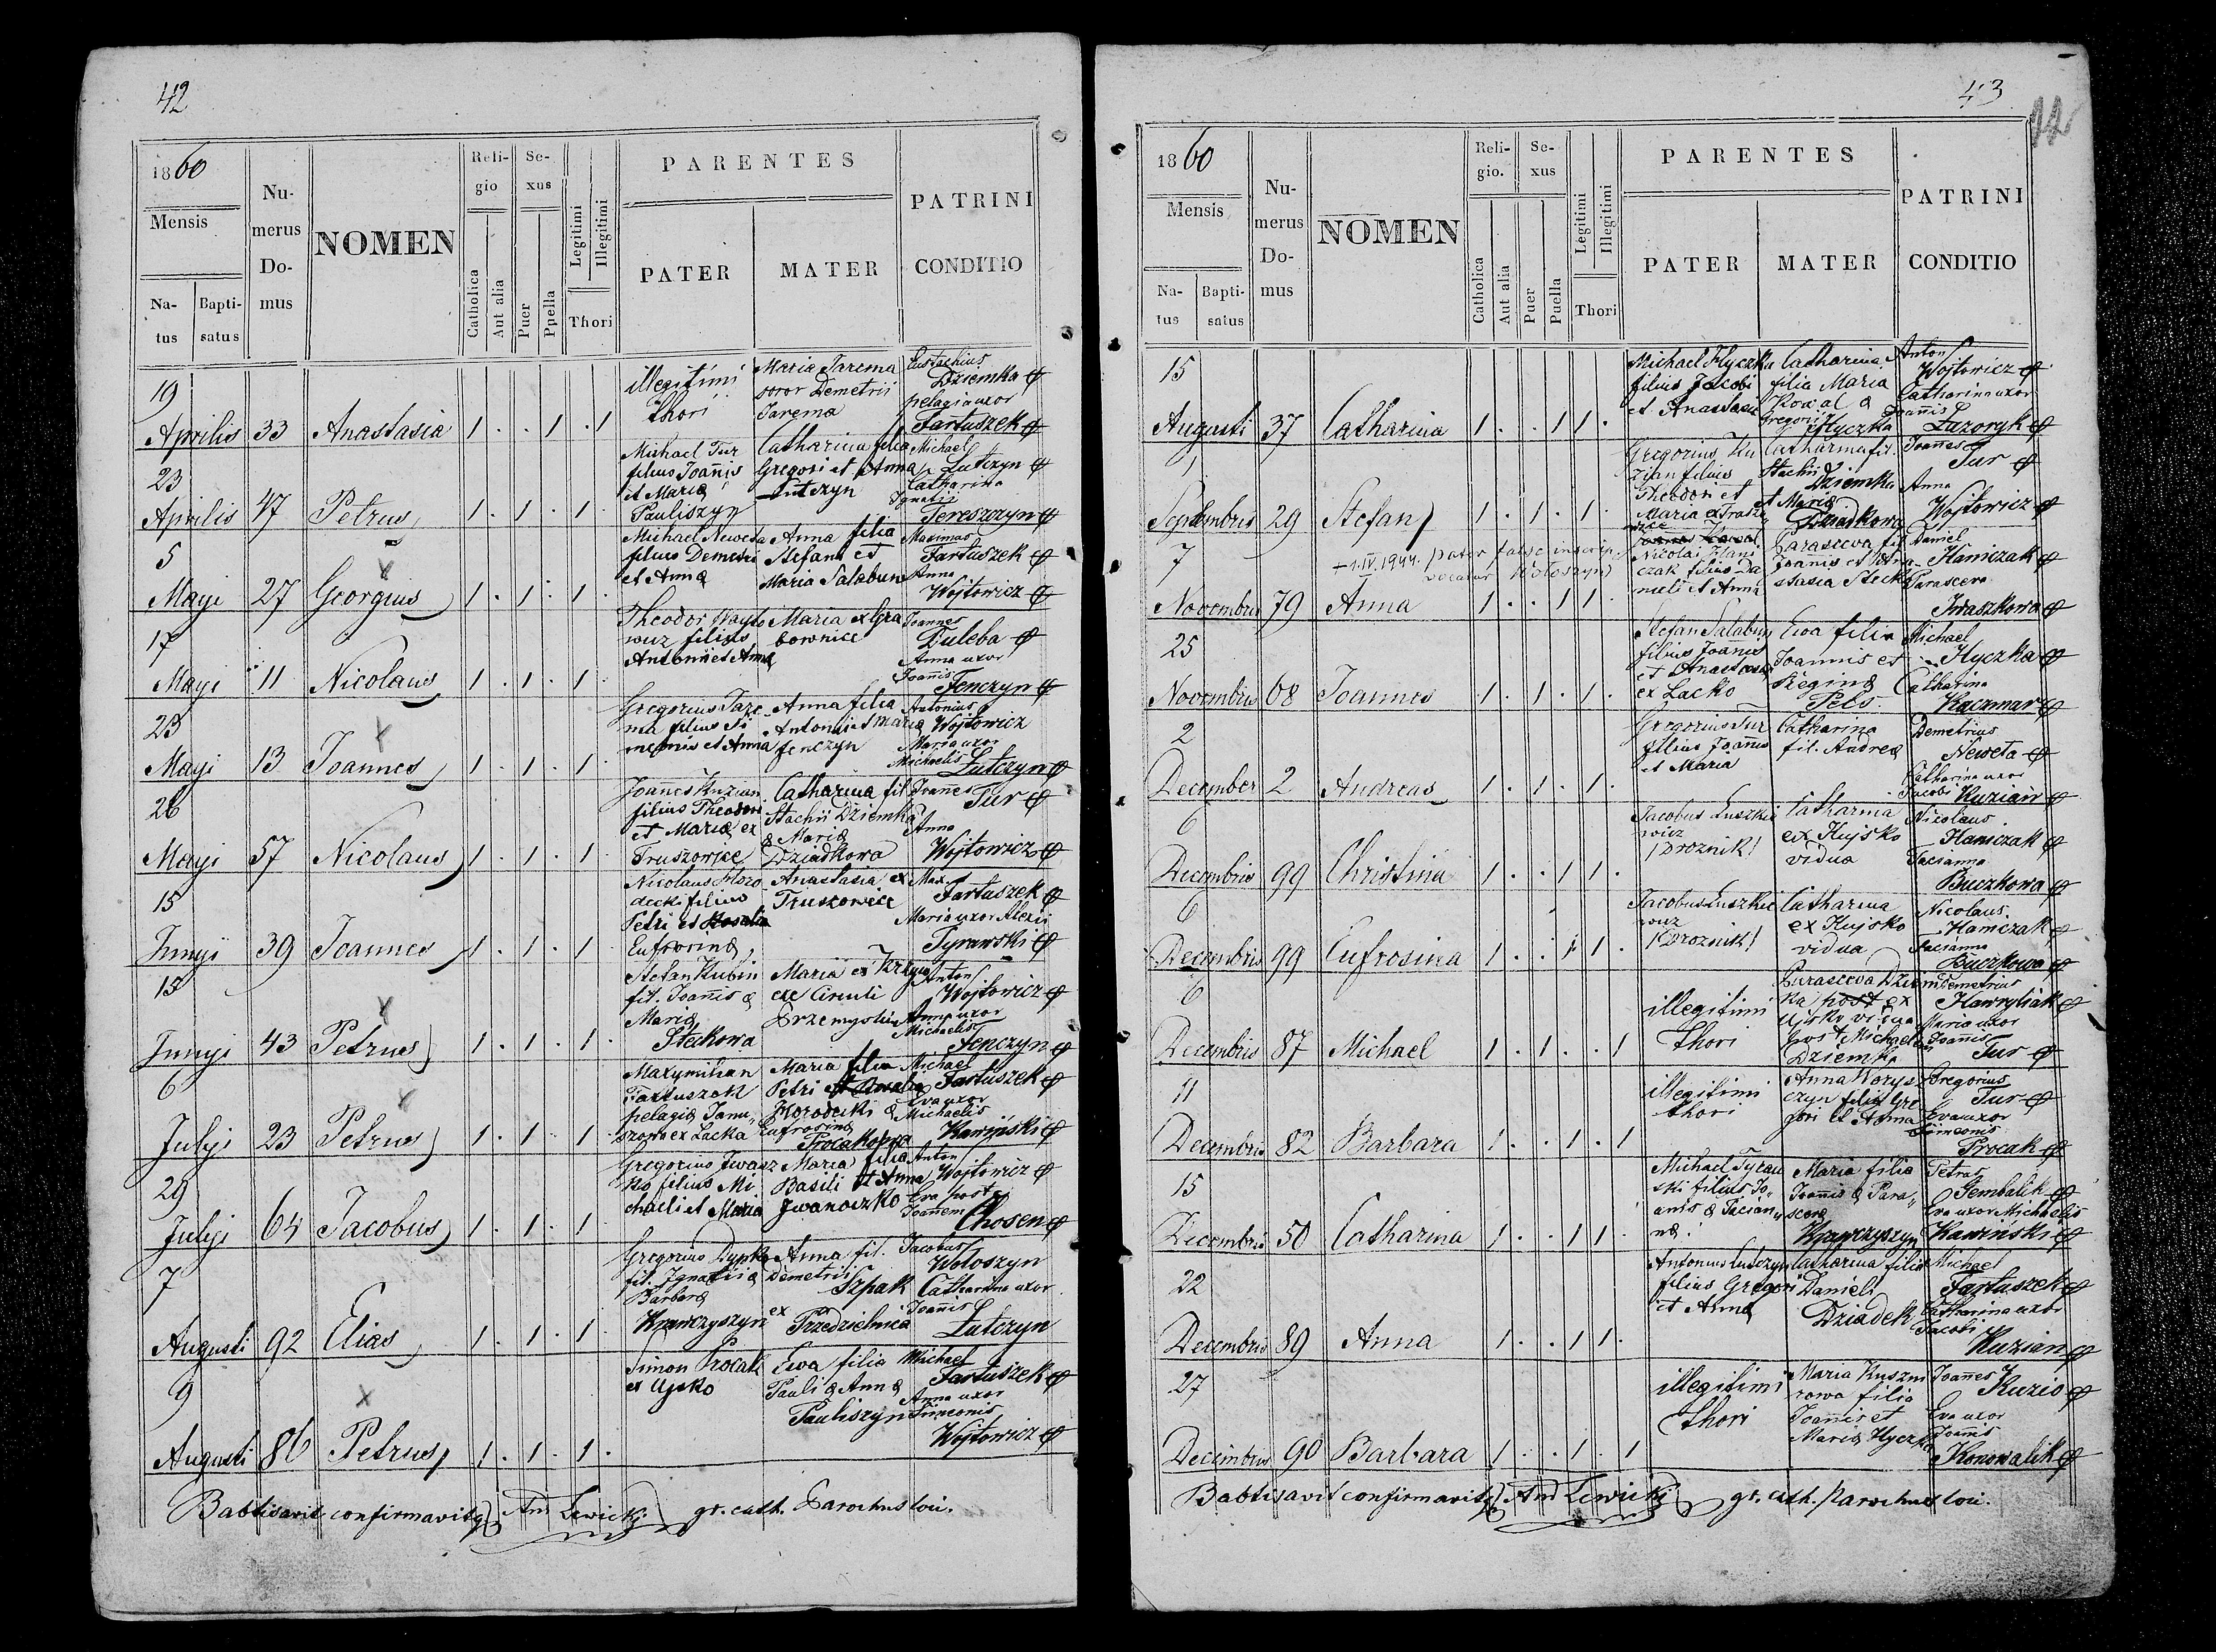 42
1860
Mensis
Na-
tus
Bapti-
satus
Nu-
merus
Do-
mus
NOMEN
Reli-
gio
Catholica
Aut alia
Se-
xus
Puer
Ppella
Legitimi
Illegitimi
Thori
PARENTES
PATER
MATER
PATRINI
CONDITIO
19
Aprilis 33 Anastasia 1 . . 1 . 1
illegitimi
thori
Maria Jarema
soror Demetrii
Jarema
Eustachius
Dziemka
pelagia uxor
Fartuszek
23
Aprilis 47 Petrus 1 . 1 . 1 .
Michael Tur
filius Joannis
et Maria
Pauliszyn
Catharina filia
Gregori et Anna
Lutczyn
Michael
Lutczyn
Catharina
Ignatii
Tereszczyn
5
Maji 27 Georgius 1 . 1 . 1 .
Michael Neweta
filius Demetri
et Anna
Anna filia
Stefani et
Maria Salabun
Maximus
Fartuszek
Anna
Wojtowicz
17
Maji 11 Nicolaus 1 . 1 . 1 .
Theodor Wayto
wicz filius
Antoni et Anna
Maria ex Gra
bownice
Joannes
Duleba
Anna uxor
Joannis
Fenczyn
23
Maji 13 Joannes 1 . 1 . 1 .
Gregorius Jare
ma filius Si
meonis et Anna
Anna filia
Antoni et Maria
fenczyn
Antonius
Wojtowicz
Maria uxor
Michaelis
Lutczyn
26
Maji 57 Nicolaus 1 . 1 . 1 .
Joannes Kuzian
filius Theodori
et Maria ex
Truszowice
Catharina fil
Stachii Dziemka
& Maria
Dziadkowa
Joannes
Tur
Anna
Wojtowicz
15
Junyi 39 Joannes 1 . 1 . 1
Nicolaus Horo
decki filius
Petri et Rosalia
Eufrosina
Anastasia ex
Truszowice
Max
Fartuszek
Maria uxor Alexii
Tyrawski
15
Junyi 43 Petrus 1 . 1 . 1 .
Stefan Kubin
fil. Joannis &
Maria
Steckowa
Maria ex
Anton
Wojtowicz
Anna uxor
Michaelis
Fenczyn
6
Julyi 23 Petrus 1 . 1 . 1 .
Maxymilian
Fartuszek
pelagia
ex Lacka
Maria filia
Petri et Rosalia
Horodecki &
Eufrosina
Procakowa
Michael
Fartuszek
Eva uxor
Michaelis
Kawinski
29
Julyi 64 Jacobus 1 . 1 . 1
Gregorius Iwasz
ko filius Mi
chaeli et Maria
Maria filia
Basili et Anna
Jwanoczko
Anton
Wojtowicz
Eva post
Joannem
Chosen
7
Augusti 92 Elias 1 . 1 . 1
Gregorius Dypko
fil. Ignatii &
Barbara
Krawczyszyn
Anna fil.
Demetrii
Szpak
ex
Przedzielnica
Jacobus
Woloszyn
Catharina uxor
Joannis
Lutczyn
9
Augusti 86 Petrus 1 . 1 . 1 .
Simon Procak
ex Ujsko
Ewa filia
Pauli & Anna
Pauliszyn
Michael
Fartuszek
Anna uxor
Simeonis
Wojtowicz
Babtisavit confirmavitq And Lewicki gr. cath. Parochus loci.
43
12
1860
Mensis
Na-
tus
Bapti-
satus
Nu-
merus
Do-
mus
NOMEN
Reli-
gio.
Catholica
Aut alia
Se-
xus
Puer
Puella
Legitimi
Illegitimi
Thori
PARENTES
PATER
MATER
PATRINI
CONDITIO
15
Augusti 37 Catharina 1 . . 1 1 .
Michael Hyczka
filius Jacobi
et Anastasia
Catharina
filia Maria
Kowal &
Gregori Hyczka
Anton
Wojtowicz
Catharina uxor
Joannis
Lazoryk
1
Septembris 29 Stefan 1 . 1 . 1 .
Gregorius Ku
zian filius
Theodori et
Maria ex Trusz
Catharina fil.
Stachii
Dziemka
et Maria
Dziadkowa
Joannes
Tur
Anna
Wojtowicz
7
Novembris 79 Anna 1 . . 1 1 .
1.IV.1944. pater falso inscrip.
vocatur Woloszyn)
Nicolai Hani
czak filius Da
nieli et Anna
Parasceva fil
Joannis et
stasia Steck
Daniel
Haniczak
Parasceva
Iwaszkowa
25
Novembris 68 Joannes 1 . 1 . 1 .
Stefan Salabun
filius Joannis
et Anastasia
ex Lacko
Ewa filia
Joannis et
Regina
Pels
Michael
Hyczka
Catharina
Kaczmar
2
December 2 Andreas 1 . 1 . 1 .
Gregorius Tur
filius Joannis
et Maria
Catharina
fil. Andrea
Demetrius
Neweta
Catharina uxor
Jacobi Kuzian
6
Decembris 99 Christina 1 . . 1 1 .
Jacobus Luszkie
wicz
/Droznik!
Catharina
ex Hujsko
vidua
Nicolaus
Haniczak
Tacianna
Buczkowa
6
Decembris 99 Eufrosina 1 . . 1 1 .
Jacobus Luszkie
wicz
/Droznik!
Catharina
ex Hujsko
vidua
Nicolaus.
Hamczak
Tacianna
Buczkowa
6
Decembris 87 Michael 1 . 1 . . 1
illegitimi
thori
Parasceva Dziem
ka post ex
Ujsko vidua
post Michaelem
Dziemka
Demetrius
Hawryliak
Maria uxor
Joannis
Tur
11
Decembris 82 Barbara 1 . . 1 . 1
illegitimi
thori
Anna Worys
czyn filia Gre
gori et Anna
Gregorius
Tur
Eva uxor
Simeonis
Procak
15
Decembris 50 Catharina 1 . . 1 1 .
Michael Tyraw
ski filius Jo
anis & Tacian
na.
Maria filia
Joannis & Para
sceva
Krawczyszyn
Petrus
Gembalik
Eva uxor Michaelis
Kawinski
22
Decembris 89 Anna 1 . . 1 1 .
Antonius Lutczyn
filius Gregori
et Anna
Catharina filia
Danieli
Dziadek
Michael
Fartuszek
Catharina uxor
Jacobi
Kuzian
27
Decembris 90 Barbara 1 . . 1 . 1
illegitimi
thori
Maria Kuszni
rowa filia
Joannis et
Maria Hyczka
Joannes
Kuzio
Eva uxor
Joannis
Konowalik
Babtisavit confirmavitq And Lewicki gr. cath. Parochus loci.